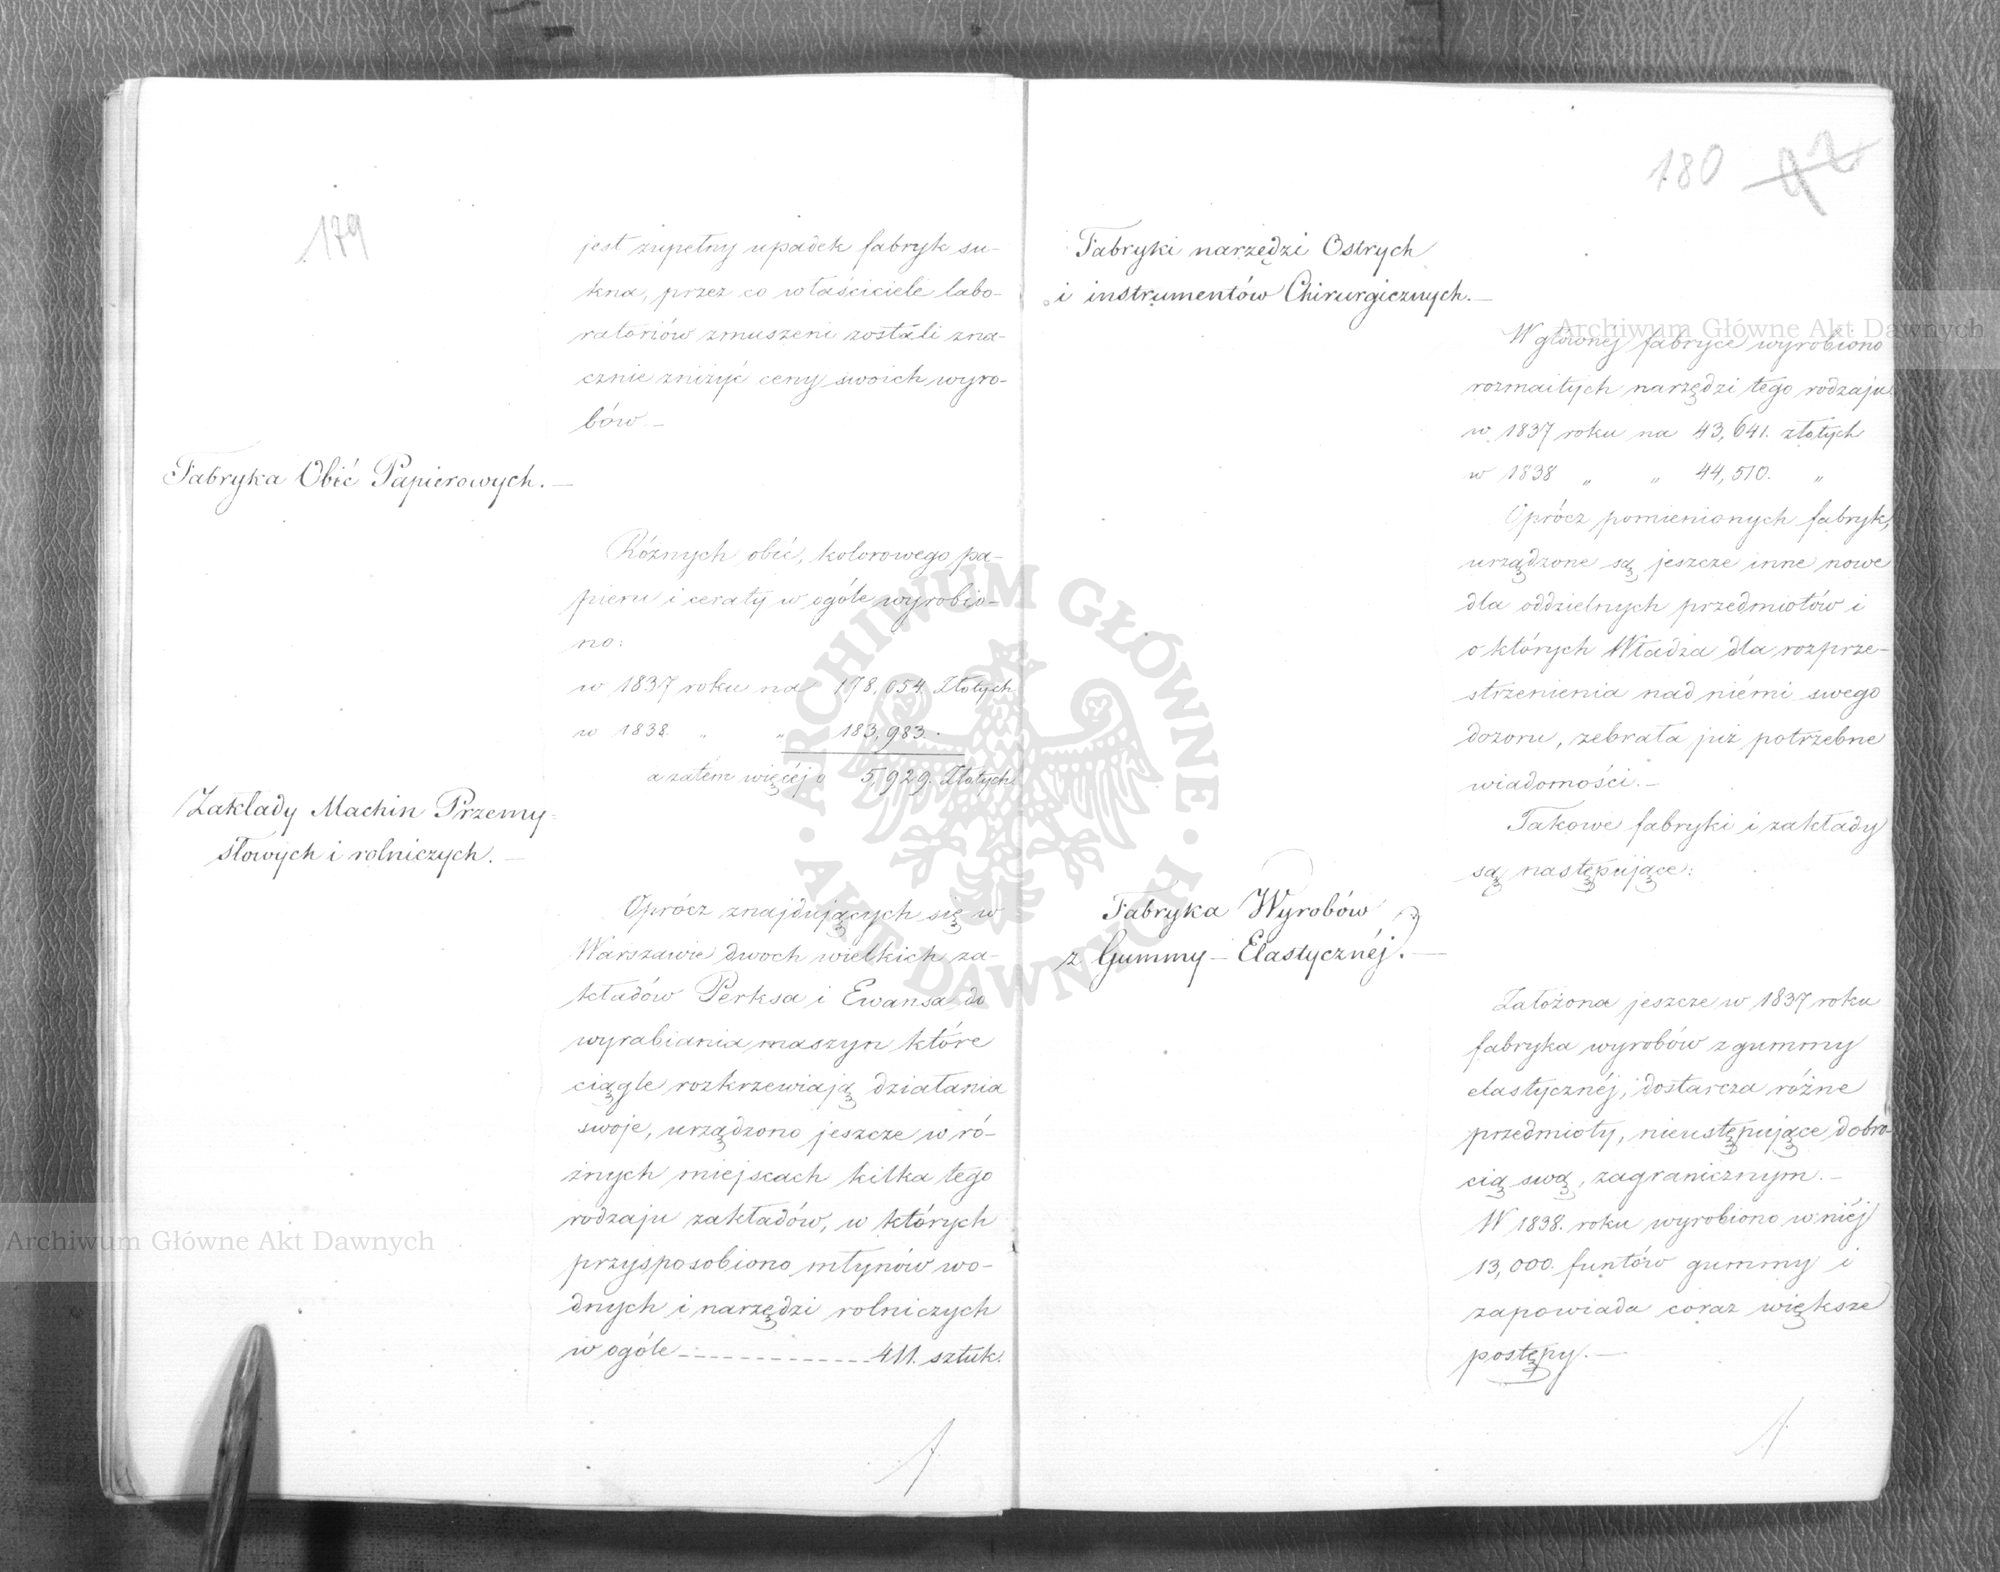 179
jest zupełny upadek fabryk su-
kna, przez co właściciele labo-
ratoriów zmuszeni zostali zna-
cznie zniżyć ceny swoich wyro-
bów. –
Fabryka Obić Papierowych. –
Różnych obić, kolorowego pa-
pieru i ceraty w ogóle wyrobio-
no:
w 1837 roku na 178,054. Złotych
w 1838. „ „ 183,983. „
a zatem więcéj o 5,929. Złotych
Zakłady Machin Przemy-
słowych i rolniczych. –
Oprócz znajdujących się w
Warszawie dwoch wielkich za-
kładów Perksa i Ewansa do
wyrabiania maszyn które
ciągle rozkrzewiają działania
swoje, urządzono jeszcze w ró-
żnych miejscach kilka tego
rodzaju zakładów, w których
przysposobiono młynów wo-
dnych i narzędzi rolniczych
w ogóle ------------- 411. sztuk.
180
92
Fabryki narzędzi Ostrych
i instrumentów Chirurgicznych. –
W głównej fabryce wyrobiono
rozmaitych narzędzi tego rodzaju.
w 1837 roku na 43,641. złotych
w 1838 „ „ 44,510. „
Oprócz pomienionych fabryk,
urządzone są jeszcze inne nowe
dla oddzielnych przedmiotów i
o których Władza dla rozprze-
strzenienia nad niémi swego
dozoru, zebrała już potrzebne
wiadomości. –
Takowe fabryki i zakłady
są następujące:
Fabryka Wyrobów
z Gummy – Elastycznéj. –
Założona jeszcze w 1837 roku
fabryka wyrobów z gummy
elastycznéj, dostarcza różne
przedmioty, nieustępujące dobro-
cią swą, zagranicznym. –
W 1838. roku wyrobiono w niéj
13,000 funtów gummy i
zapowiada coraz większe
postępy. –
Archiwum Główne Akt Dawnych
Archiwum Główne Akt Dawnych
ARCHIWUM GŁÓWNE AKT DAWNYCH